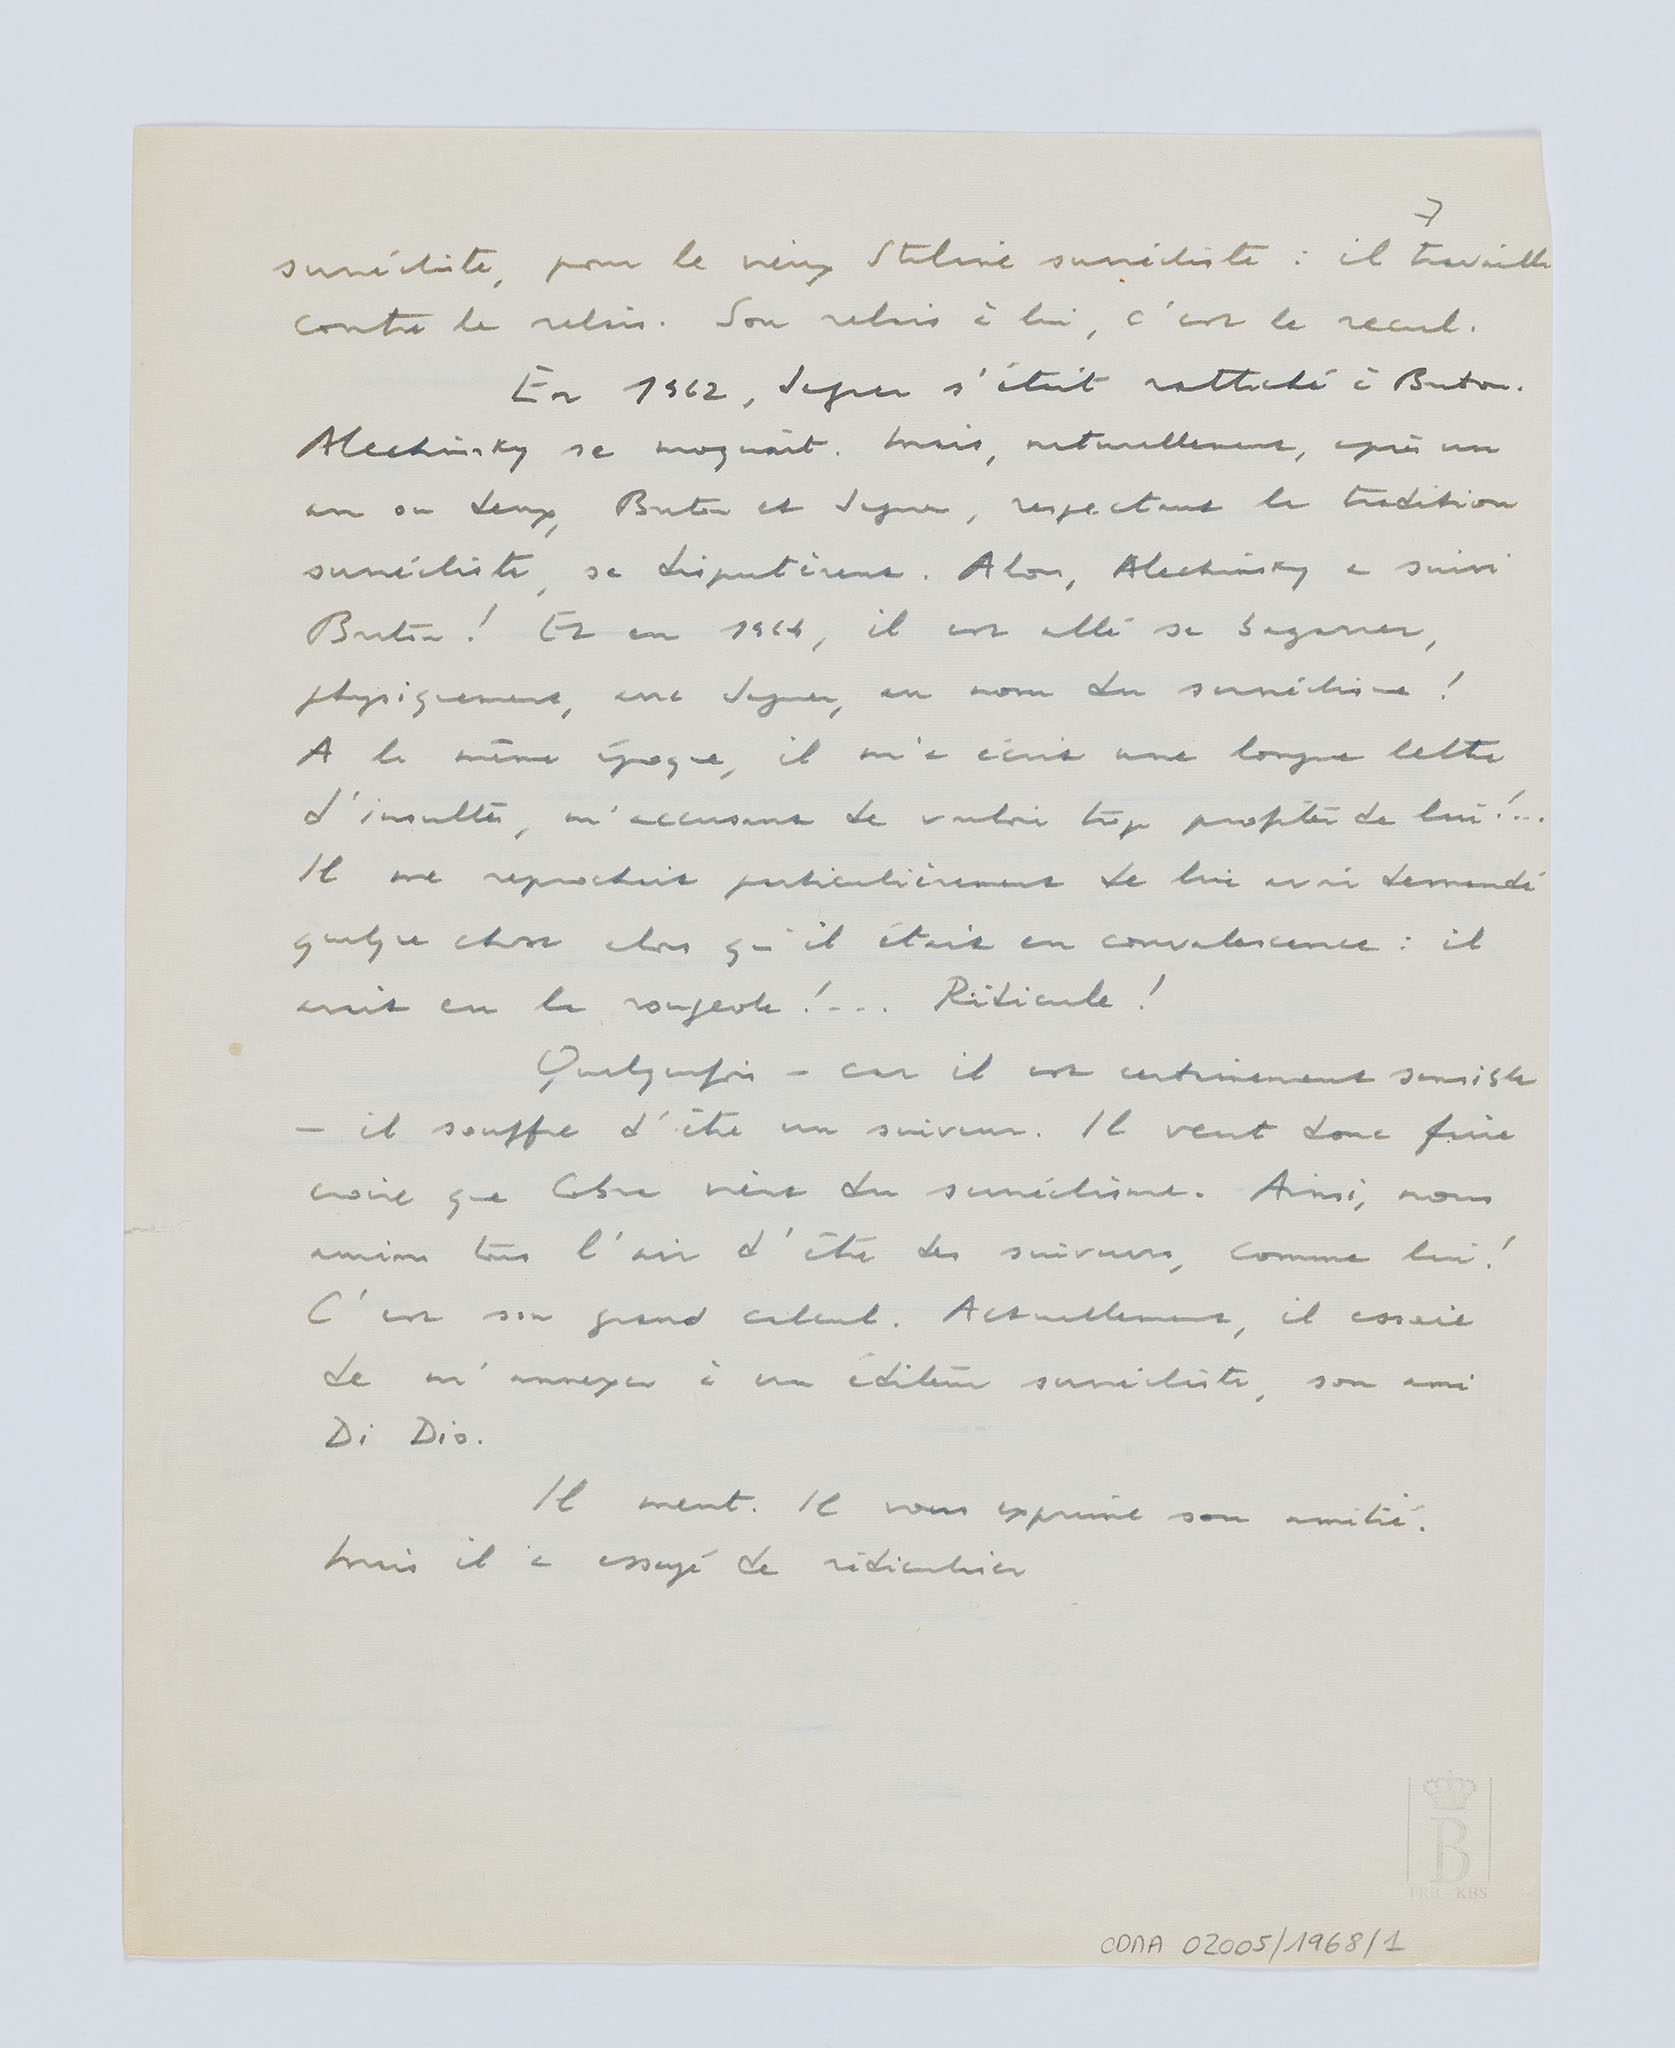 7
surréaliste, pour le vieux Staline surréaliste : il travaille
contre le relais. Son relais à lui, c'est le recul.
En 1962, Jaguer s'était rattaché à Breton.
Alechinsky se moquait. Mais, naturellement, après un
an ou deux, Breton et Jaguer, respectant la tradition
surréaliste, se disputèrent. Alors, Alechinsky a suivi
Breton ! Et en 1964, il est allé se bagarrer,
physiquement, avec Jaguer, au nom du surréalisme !
A la même époque, il m'a écrit une longue lettre
d'insultes, m'accusant de vouloir trop profiter de lui !...
Il me reprochait particulièrement de lui avoir demandé
quelque chose alors qu'il était en convalescence : il
avait eu la rougeole !... Ridicule !
Quelquefois – car il est certainement sensible
– il souffre d'être un suiveur. Il veut donc faire
croire que Cobra vient du surréalisme. Ainsi, nous
aurions tous l'air d'être des suiveurs, comme lui !
C'est son grand calcul. Actuellement, il essaie
de m'annexer à un éditeur surréaliste, son ami
Di Dio.
Il ment. Il vous exprime son amitié.
Mais il a essayé de ridiculiser
B
FRB - KBS
CDMA 02005/1968/1